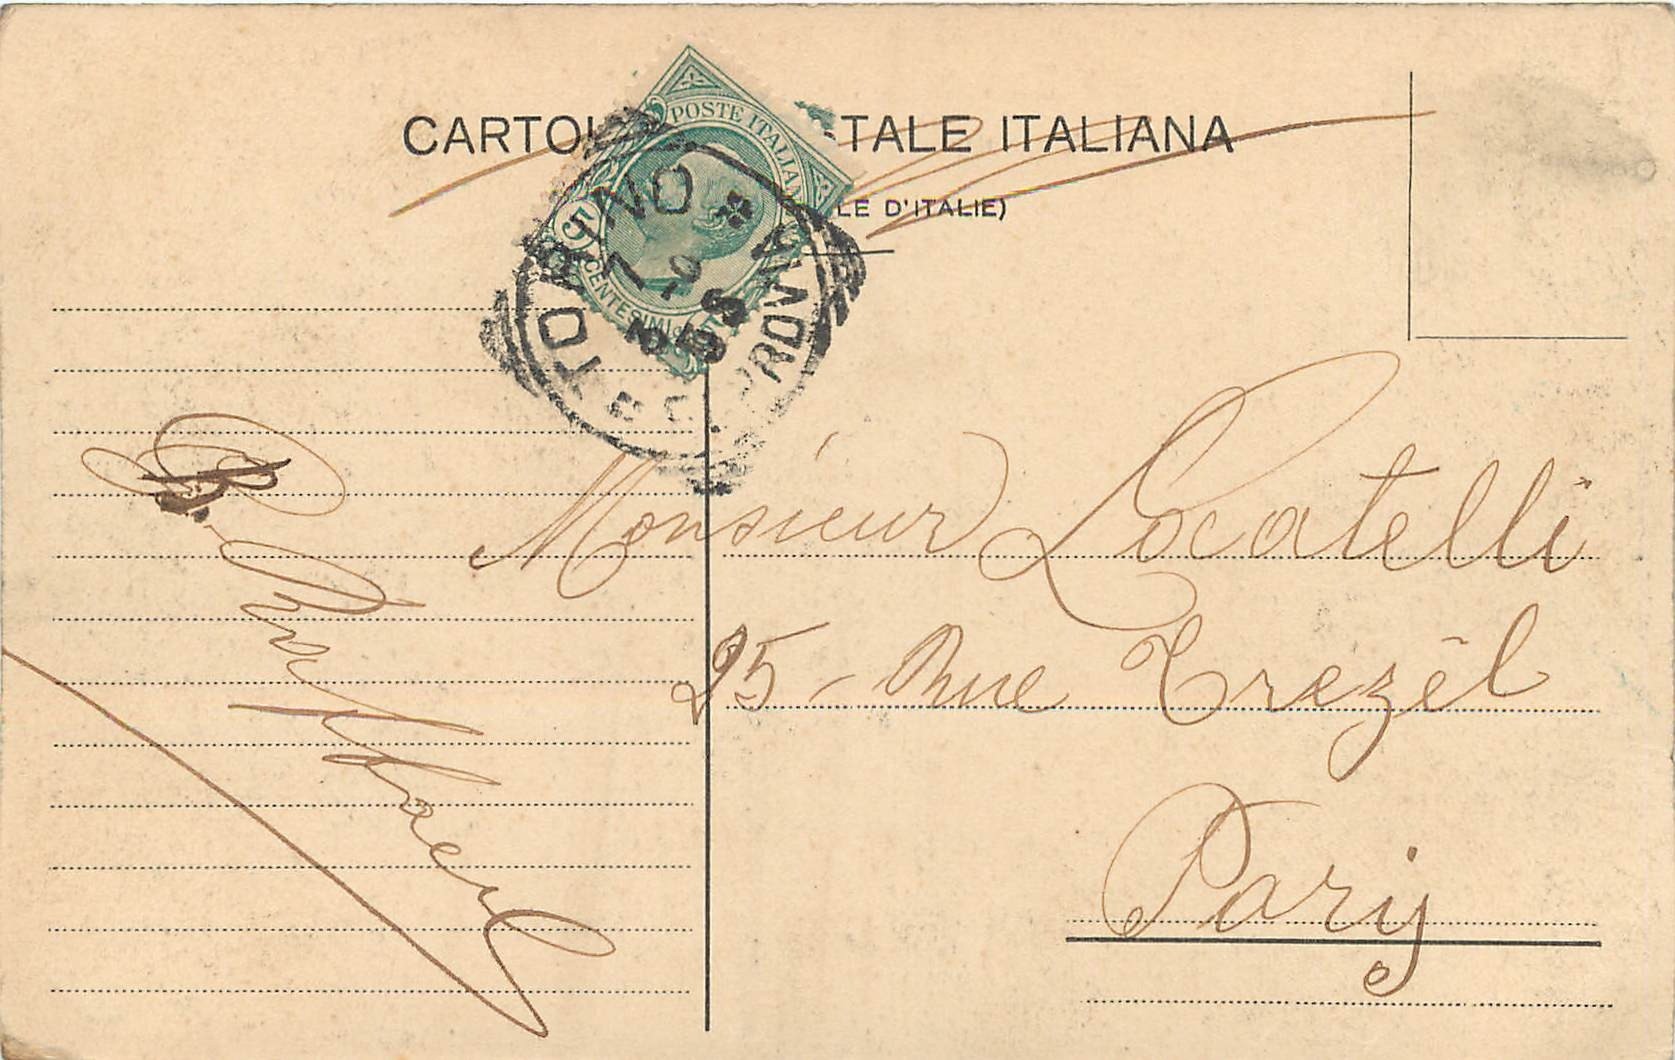 CARTOLI TALE ITALIANA
LE D'ITALIE)
POSTE ITALIAN
5
CENTESIMI
TORINO
Monsieur Locatelli
25 - Rue Trezel
Paris